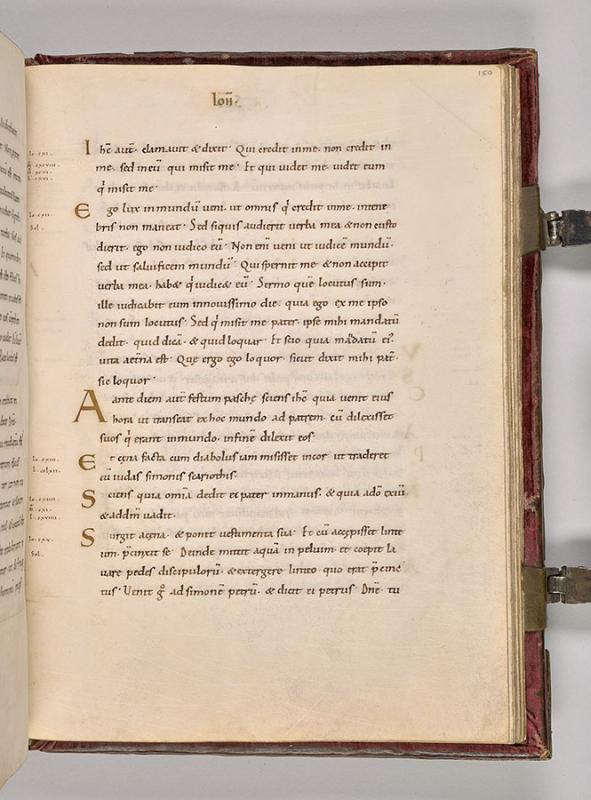 150
Ioh̄.
Ihc̄ aut̄ clamauit & dixit · Qui credit in me · non credit in
me · sed in eū qui misit me · Et qui uidet me · uidet eum
q̄ misit me ·
Ego lux in mundū ueni · ut omnis q̄ credit in me · in tene
bris non maneat · Sed siquis audierit uerba mea & non custo
dierit · ego non iudico eū · Non eni ueni ut iudicē mundū ·
sed ut saluificem mundū · Qui spernit me & non accipit
uerba mea · hab& q̄ iudic& eū · Sermo quē locutus sum ·
ille iudicabit eum in nouissimo die · quia ego ex me ipso
non sum locutus · Sed q̄ misit me pater · ipse mihi mandatū
dedit · quid dicā · & quid loquar · Et scio quia mādatū ei
uita aet̄na est · Quę ergo ego loquor · sicut dixit mihi pat̄ ·
sic loquor ·
Aante diem aut̄ festum paschę sciens ihc̄ quia uenit eius
hora ut transeat ex hoc mundo ad patrem · cū dilexisset
suos q̄ erant in mundo · in finē dilexit eos ·
Et cęna facta cum diabolus iam misisset in cor ut traderet
eū iudas simonis scariothis ·
Sciens quia omīa dedit ei pater in manus · & quia a dō exiuī ·
& ad dm̄ uadit ·
Surgit a cęna · & ponit uestimenta sua · Et cū accępisset linte
um · p̄cinxit se · Deinde mittit aquā in peluim · et coepit la
uare pedes discipulorū · & extergere linteo · quo erat p̄cinc
tus · Uenit g̊ ad simonē petrū · & dicit ei petrus · Dn̄e · tu